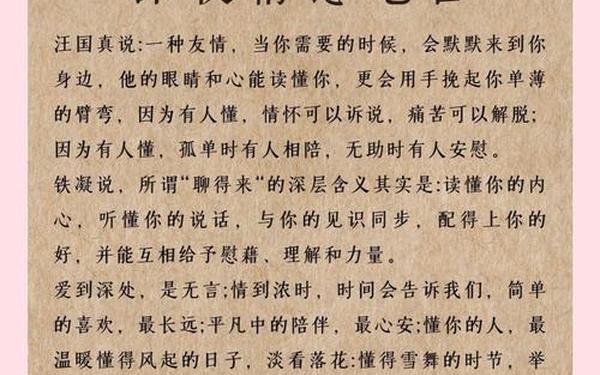 汪国真说:一种友情，当你需要的时候，会默默来到你
身边，他的眼睛和心能读懂你，更会用手挽起你单薄
的臂弯，因为有人懂，情怀可以诉说，痛苦可以解脱;
因为有人懂，孤单时有人相陪，无助时有人安慰。
铁凝说，所谓“聊得来“的深层含义其实是:读懂你的内
心，听懂你的说话，与你的见识同步，配得上你的
好，并能互相给予慰藉、理解和力量。
爱到深处，是无言;情到浓时，时间会告诉我们，简单
的喜欢，最长远;平凡中的陪伴，最心安;懂你的人，最
温暖懂得风起的日子，淡看落花:懂得雪舞的时节，举